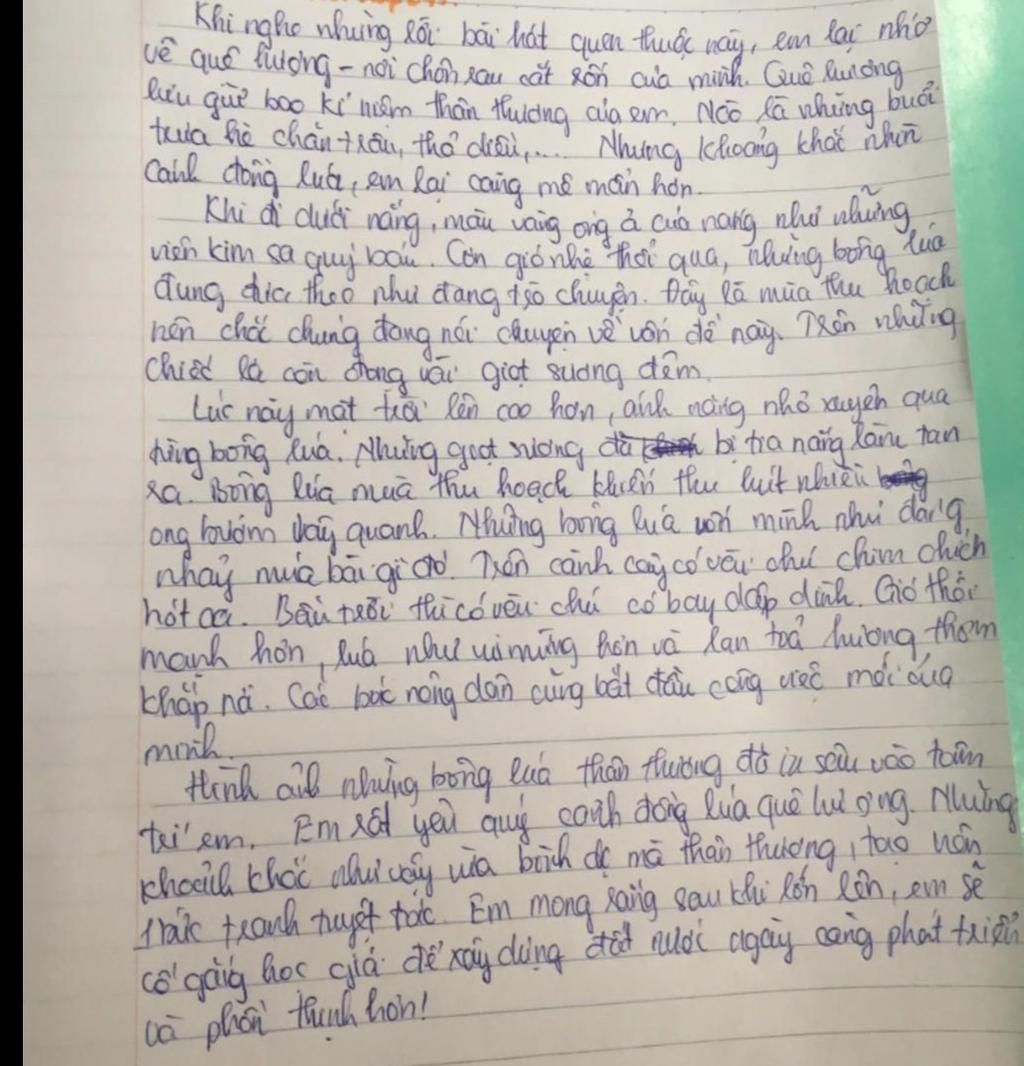 Khi nghe những lời bài hát quen thuộc này, em lại nhớ
về quê hương - nơi chôn rau cắt rốn của mình. Quê hương
lưu giữ bao kỉ niệm thân thương của em. Nào là những buổi
trưa hè chăn trâu, thả diều,... Nhưng khoảng khắc nhìn
cánh đồng lúa, em lại càng mê mẩn hơn.
Khi đi dưới nắng, màu vàng óng ả của nắng như những
viên kim sa quý báu. Cơn gió nhè thổi qua, những bông lúa
đung đưa theo như đang trò chuyện. Đây là mùa thu hoạch
nên chắc chúng đang nói chuyện về vấn đề này. Trên những
chiếc lá còn đọng vài giọt sương đêm.
Lúc này mặt trời lên cao hơn, ánh nắng nhỏ xuyên qua
từng bông lúa. Những giọt sương đã bị tia nắng làm tan
ra. Bông lúa mùa thu hoạch khiến thu hút nhiều
ong bướm vây quanh. Những bông lúa uốn mình như đang
nhảy múa bài gì đó. Trên cành cây có vài chú chim chích
hót ca. Bầu trời thì có vài chú cò bay dập dình. Gió thổi
mạnh hơn, lúa như vui mừng hơn và lan toả hương thơm
khắp nơi. Các bác nông dân cũng bắt đầu công việc mới của
mình.
Hình ảnh những bông lúa thân thương đã in sâu vào tâm
trí em. Em rất yêu quý cánh đồng lúa quê hương. Những
khoảnh khắc như vậy vừa bình dị mà thân thương, tạo nên
bức tranh tuyệt tác. Em mong rằng sau khi lớn lên, em sẽ
cố gắng học giỏi để xây dựng đất nước ngày càng phát triển
và phồn thịnh hơn!